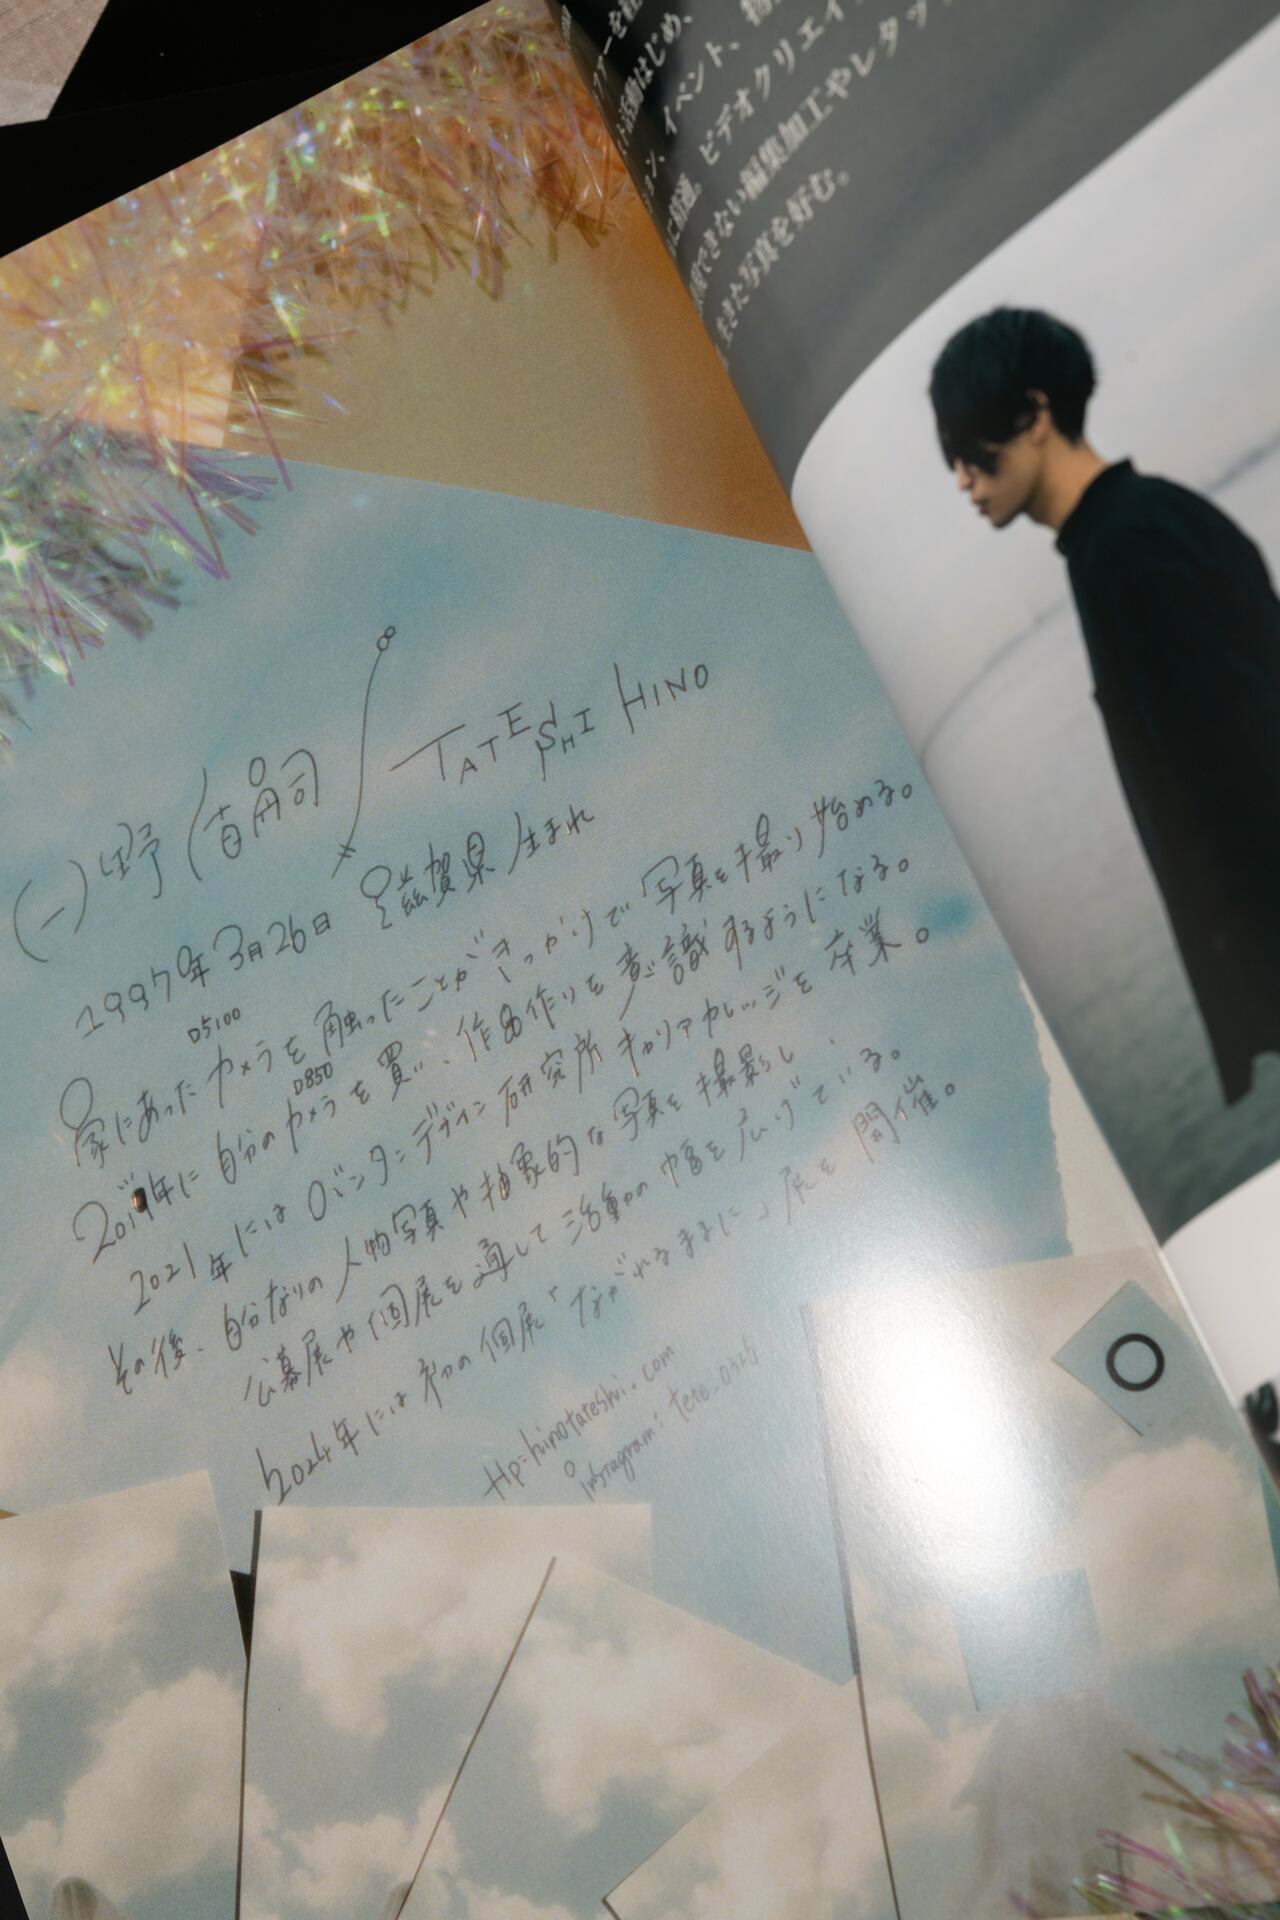 日野 直司 TATESHI HINO
1997年3月26日 滋賀県生まれ
D5100
家にあったカメラを触ったことがきっかけで写真を撮り始める。
D850
2019年に自分のカメラを買い、作品作りを意識するようになる。
2021年にはバンタンデザイン研究所キャリアカレッジを卒業。
その後、自分なりの人物写真や抽象的な写真を撮影し、
公募展や個展を通して活動の幅を広げている。
2024年には初の個展「ながれるままに」展を開催。
Hp=hinotateshi.com
instagram: tete_0326
活動はじめ、
イベント、物
ビデオクリエイ
できない編集加工やレタッ
生きた写真を好む。